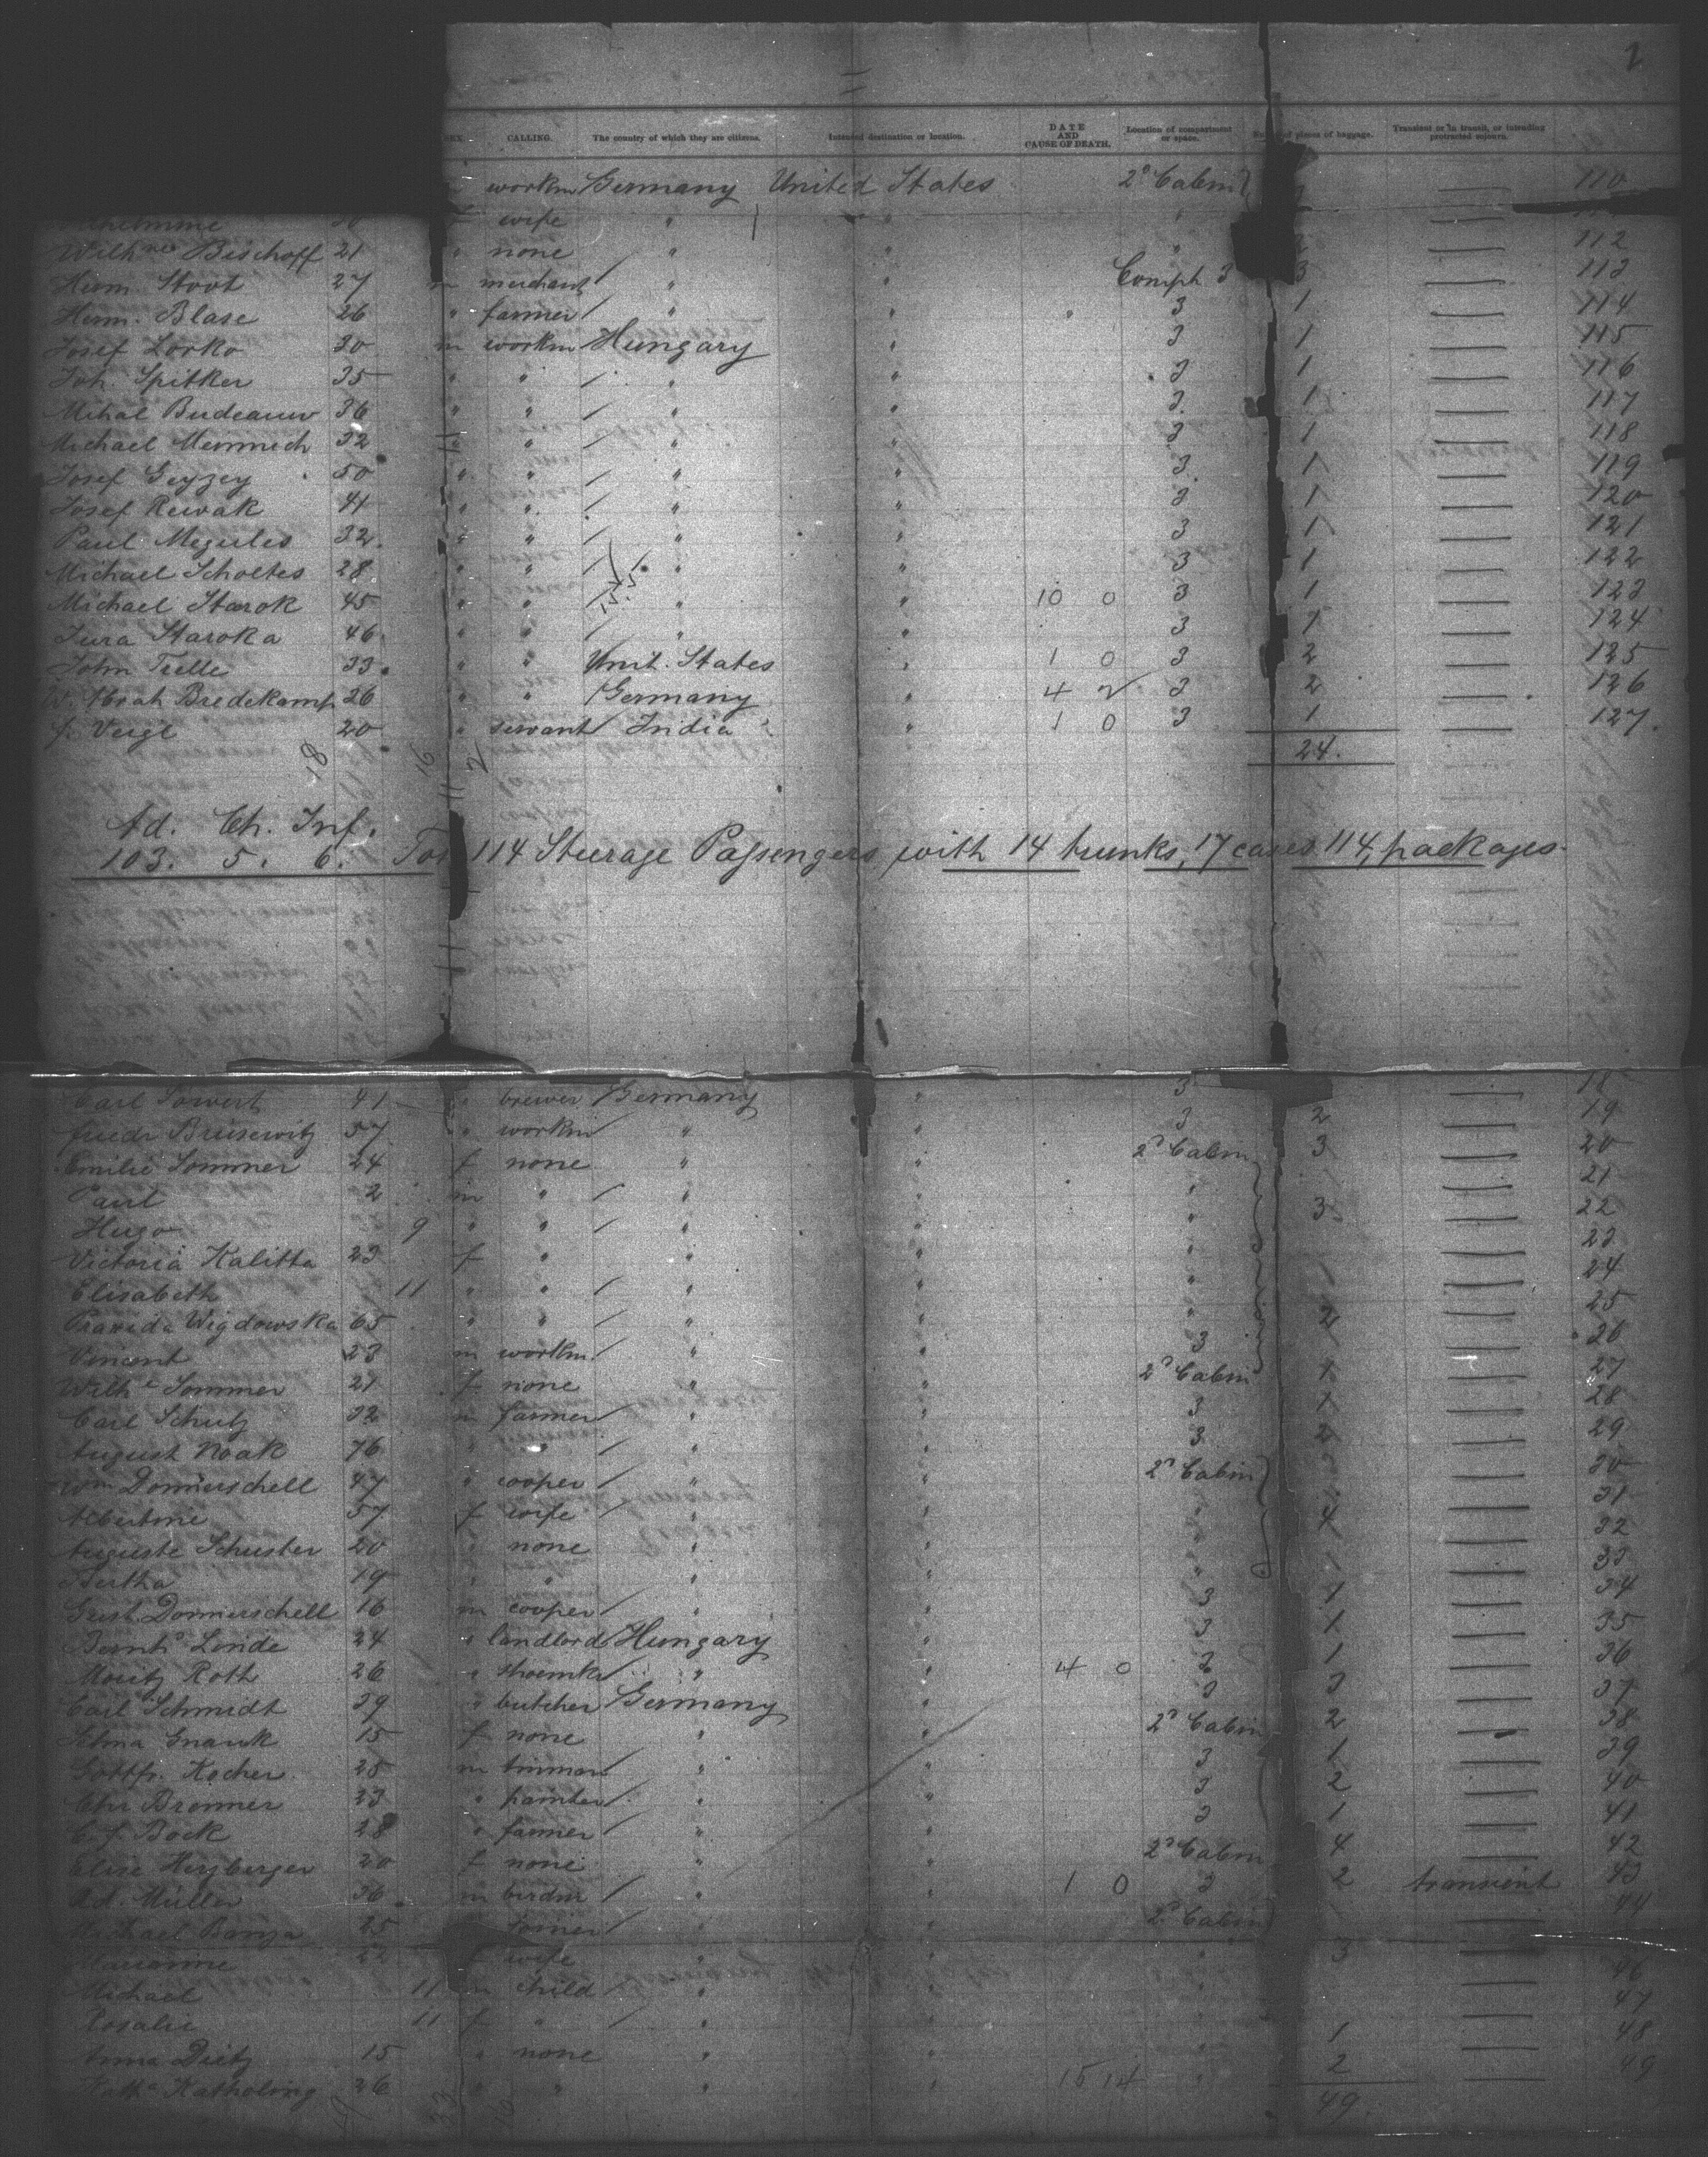 2
SEX. CALLING. The country of which they are citizens. Intended destination or location. DATE AND CAUSE OF DEATH. Location of compartment or space. Number of pieces of baggage. Transient or in transit, or intending protracted sojourn.
workm Germany United States 2d Cabin — 110
wife " " " —
Wilhne Bischoff 21 " none " " " — 112
Herm. Stoot 27 m merchant " " Compt 3 3 — 113
Herm. Blase 26 " farmer " " 3 1 — 114
Josef Lorko 30 m workm Hungary " 3 1 — 115
Joh. Spitker 35 " " " " 3 1 — 116
Mihal Budeauw 36 " " " " 3 1 — 117
Michael 32 " " " " 3 1 — 118
Josef Geyzey 50 " " " " 3 1 — 119
Josef Rewak 41 " " " " 3 1 — 120
Paul Megules 32 " " " " 3 1 — 121
Michael Scholtes 28 " " " " 3 1 — 122
Michael Starok 45 " " " " 10 0 3 1 — 123
Jura Staroka 46 " " " " 3 1 — 124
John Telle 33 " " Unit. States " 1 0 3 2 — 125
Bredekamp 26 " " Germany " 4 2 3 2 — 126
f. Veigl 20 " servant India " 1 0 3 1 — 127.
18 16 2 24.
Ad. Ch. Inf.
103. 5. 6. Tot 114 Steerage Passengers with 14 trunks, 17 cases 114 packages.
Carl Sowert 41 " brewer Germany " 3 — 18
Friedr Brusewitz 57 " workm " " 3 2 — 19
Emilie Sommer 24 f none " " 2d Cabin 3 — 20
Paul 2 m " " " " — 21
Hugo 9 " " " " " 3 — 22
Victoria Kalitta 23 f " " " " — 23
Elisabeth 11 " " " " " — 24
Wigdowska 65 " " " " " 2 — 25
Vincent 23 m workm " " 3 — 26
Wilhe Sommer 21 f none " " 2d Cabin 1 — 27
Carl Schulz 32 m farmer " " 3 1 — 28
August Noak 76 " " " " 3 2 — 29
Wm Dommerschell 47 " cooper " " 2d Cabin — 30
Albertine 57 f wife " " " 4 — 31
Auguste Schuster 20 " none " " " — 32
Bertha 19 " " " " " 1 — 33
Gust. Dommerschell 16 m cooper " " 3 1 — 34
Bernhd Linde 24 " landlord Hungary " 3 1 — 35
Moritz Roth 26 " shoemkr " " 4 0 3 1 — 36
Carl Schmidt 39 " butcher Germany " 3 3 — 37
Selma Gnauk 15 f none " " 2d Cabin 2 — 38
Gottfr. Kocher 25 m tinman " " 3 1 — 39
Chr Bronner 23 " painter " " 3 2 — 40
C. f. Bock 28 " farmer " " 3 1 — 41
Elise Herzberger 20 f none " " 2d Cabin 4 — 42
Ad. Müller 36 m " " 1 0 3 2 transient 43
Michael Banza 25 " " " 2d Cabin — 44
Marianne 22 f wife " " " 3 —
Michael 11 m child " " " — 46
Rosalie 11 f " " " " — 47
Anna Dietz 15 " none " " " 1 — 48
Kathe Katholing 26 " " " " 15 14 " 2 — 49
33 16 49.